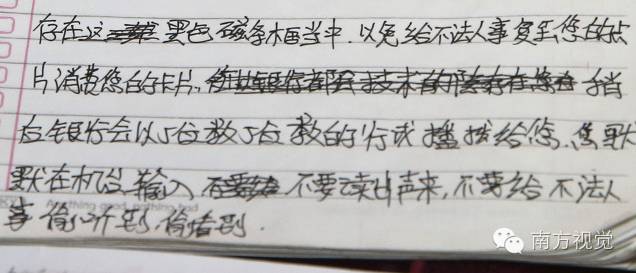 存在这 黑色磁条框当中.以免给不法人事复至您的卡
片消费您的卡片, 稍
后银行会以5位数5位数的行式播报给您,您默
默在机台输入 不要读出声来,不要给不法人
事偷听到,偷看到.
南方视觉